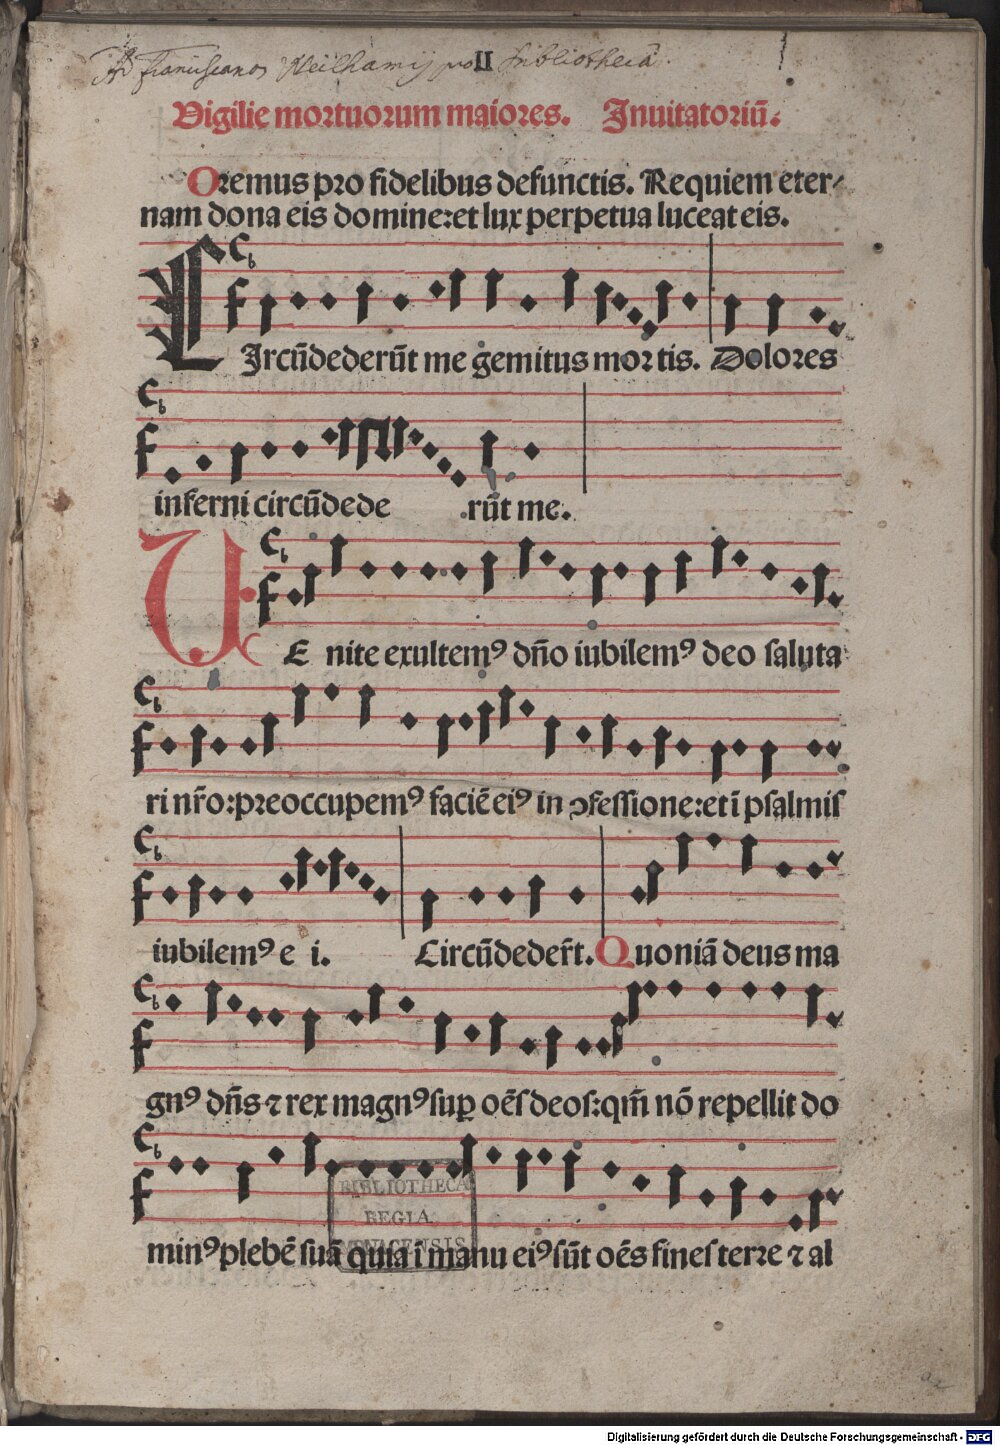 Ad Franciscanos Weilhamij pro Bibliotheca.
II
Vigilie mortuorum maiores. Inuitatoriū.
Oremus pro fidelibus defunctis. Requiem eter-
nam dona eis domine:et lux perpetua luceat eis.
CIrcūdederūt me gemitus mortis. Dolores
inferni circūdede rūt me.
VE nite exultemꝰ dño iubilemꝰ deo saluta
ri nr̄o:preoccupemꝰ faciē eiꝰ in ꝯfessione:et ī psalmis
iubilemꝰ e i. Circūdeder̄t. Quoniā deus ma
gnꝰ dn̄s ⁊ rex magnꝰ suꝑ oēs deos:qm̄ nō repellit do
minꝰ plebē suā quia ī manu eiꝰ sūt oēs fines terre ⁊ al
BIBLIOTHECA
REGIA
MONACENSIS
Digitalisierung gefördert durch die Deutsche Forschungsgemeinschaft - DFG